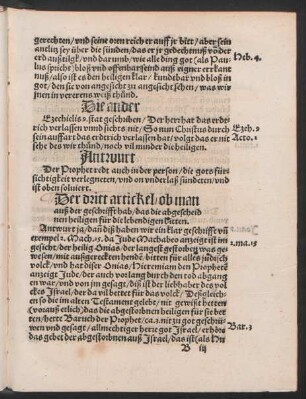 gerechten/ vnd seine oren reich er auff jr bitt/ aber sein
antlitz sey über die sünden/ das er jr gedechtnuß vō der
erd außtilgk/ vnd darumb/ wie alle ding got (als Pau
lus spricht) bloß vnd offenbar seind auß eigner erkant
nuß/ also ist es den heiligen klar/ kundtbar vnd bloß in
got/ den sie von angesicht zu angesicht sehen/ was wir
jnen in vererens weiß thůnd.
Heb. 4.
Die ander
Ezechielis stat geschriben/ Der herr hat das erd-
rich verlassen vnnd sichts nit/ So nun Christus durch
sein auffart das erdtrich verlassen hat/ volgt das er nit
sehe des wir thůnd/ noch vil minder die heiligen.
Ezech.
Acto.
Antwurt
Der Prophet redt auch in der person/ die gots für-
sichtigkeit verlegneten/ vnd on vnderlaß sündeten/ vnd
ist oben soluiert.
Der dritt artickel/ ob man
auß der geschrifft hab/ das die abgescheid
nen heiligen für die lebendigen bitten.
Antwurt ja/ dañ diß haben wir ein klar geschrifft vñ
exempel 2. Mach. 15. da Jude Machabeo anzeigt ist im
gesicht/ der heilig Onias/ der langest gestorben was ge-
wesen/ mit außgereckten hend/ bitten für alles jüdisch
volck/ vnd hat diser Onias/ Hieremiam den Prophetē
anzeigt Jude/ der auch vorlangst durch den tod abgang
en war/ vnd von jm gesagt/ diß ist der liebhaber des vol
ckes Israel/ der da vil bettet für das volck/ Desgleich-
en so die im alten Testament gelebt/ nit gewißt hetten
(voraußerlich) das die abgestorbnen heiligen für sie bet
ten/ hette Baruch der Prophet/ ca. 3 nit zů got geschrü-
wen vnd gesagt/ allmechtiger herre got Israel/ erhöre
das gebet der abgestorbnen auß Israel/ das ist (als Hu
2. ma. 15
Bar. 3
B iij